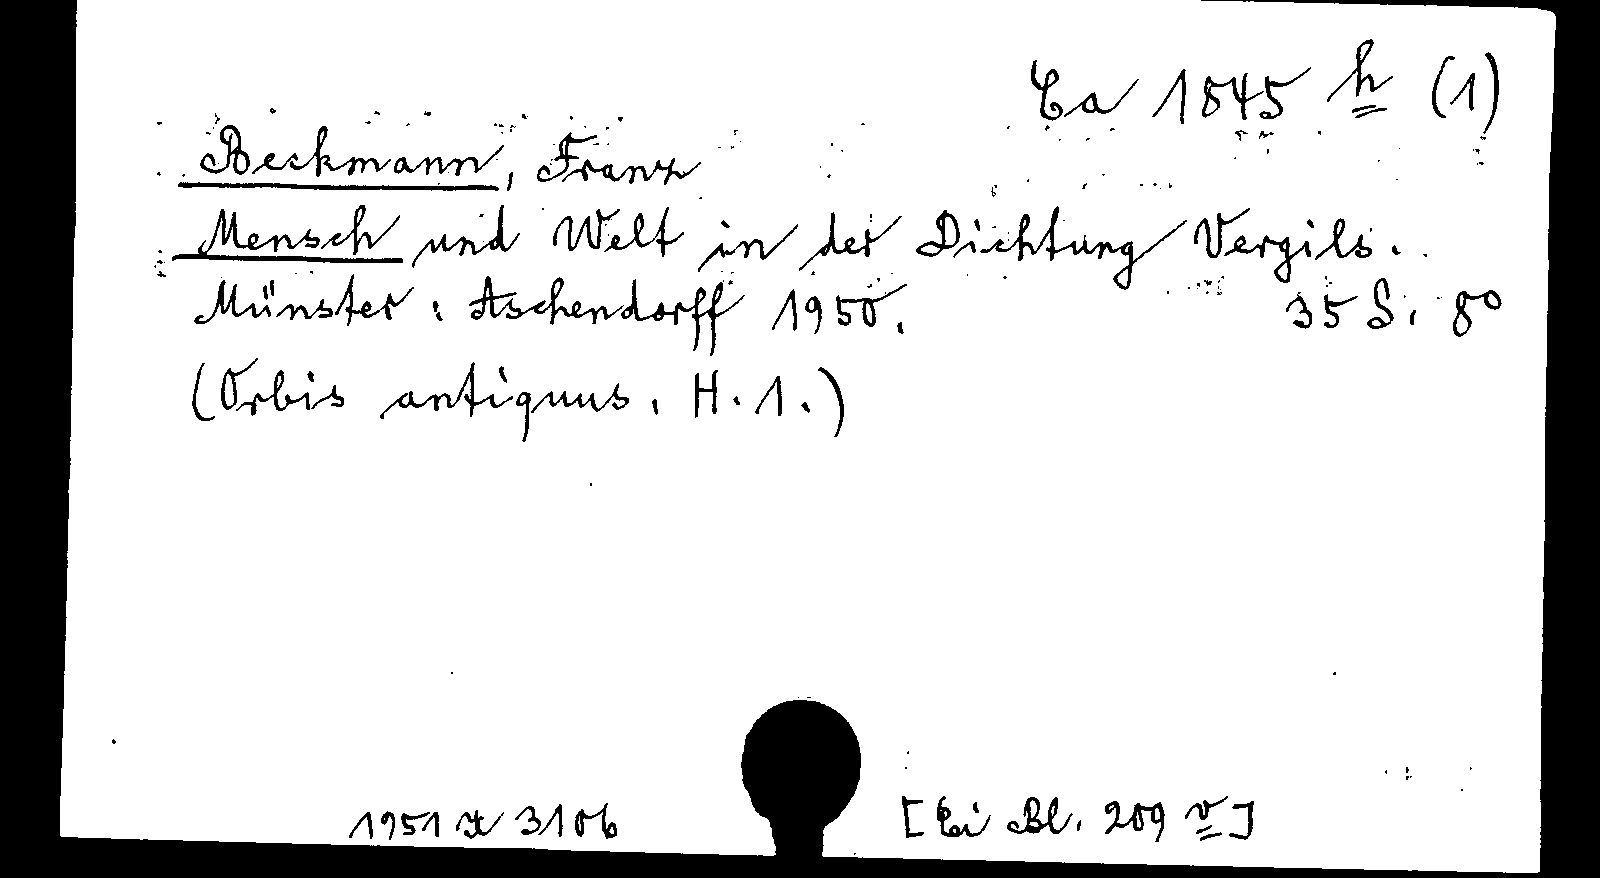 Ca 1845 h (1)
Beckmann, Franz
Mensch und Welt in der Dichtung Vergils.
Münster: Aschendorff 1950. 35 S. 8°
(Orbis antiquus. H. 1.)
1951 3106 [Bl. 209 v]